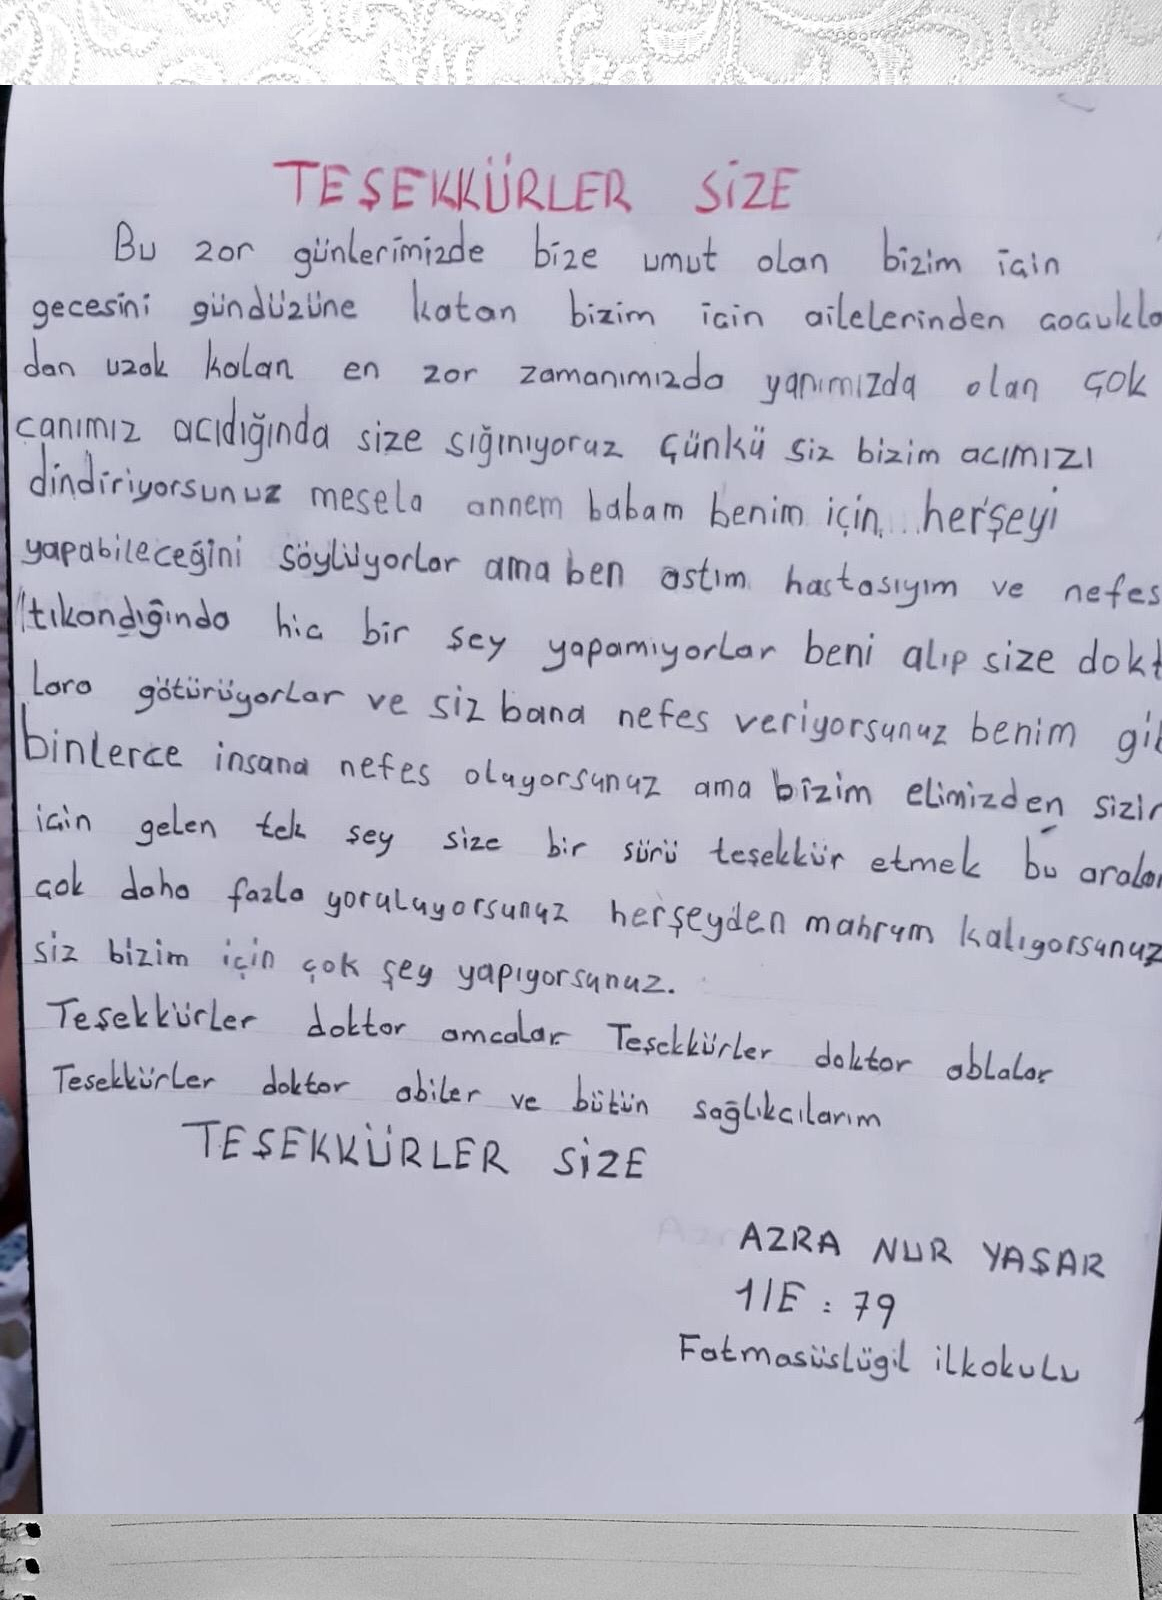 TEŞEKKÜRLER SİZE
Bu zor günlerimizde bize umut olan bizim için
gecesini gündüzüne katan bizim için ailelerinden çocukla
dan uzak kalan en zor zamanımızda yanımızda olan çok
canımız acıdığında size sığınıyoruz çünkü siz bizim acımızı
dindiriyorsunuz mesela annem babam benim için... herşeyi
yapabileceğini söylüyorlar ama ben astım hastasıyım ve nefes
tıkandığında hiç bir şey yapamıyorlar beni alıp size dokt
lara götürüyorlar ve siz bana nefes veriyorsunuz benim gib
binlerce insana nefes oluyorsunuz ama bizim elimizden sizin
için gelen tek şey size bir sürü teşekkür etmek bu aralar
çok daha fazla yoruluyorsunuz herşeyden mahrum kalıyorsunuz
siz bizim için çok şey yapıyorsunuz.
Teşekkürler doktor amcalar Teşekkürler doktor ablalar
Teşekkürler doktor abiler ve bütün sağlıkcılarım
TEŞEKKÜRLER SİZE
AZRA NUR YAŞAR
1/E : 79
Fatmasüslügil ilkokulu